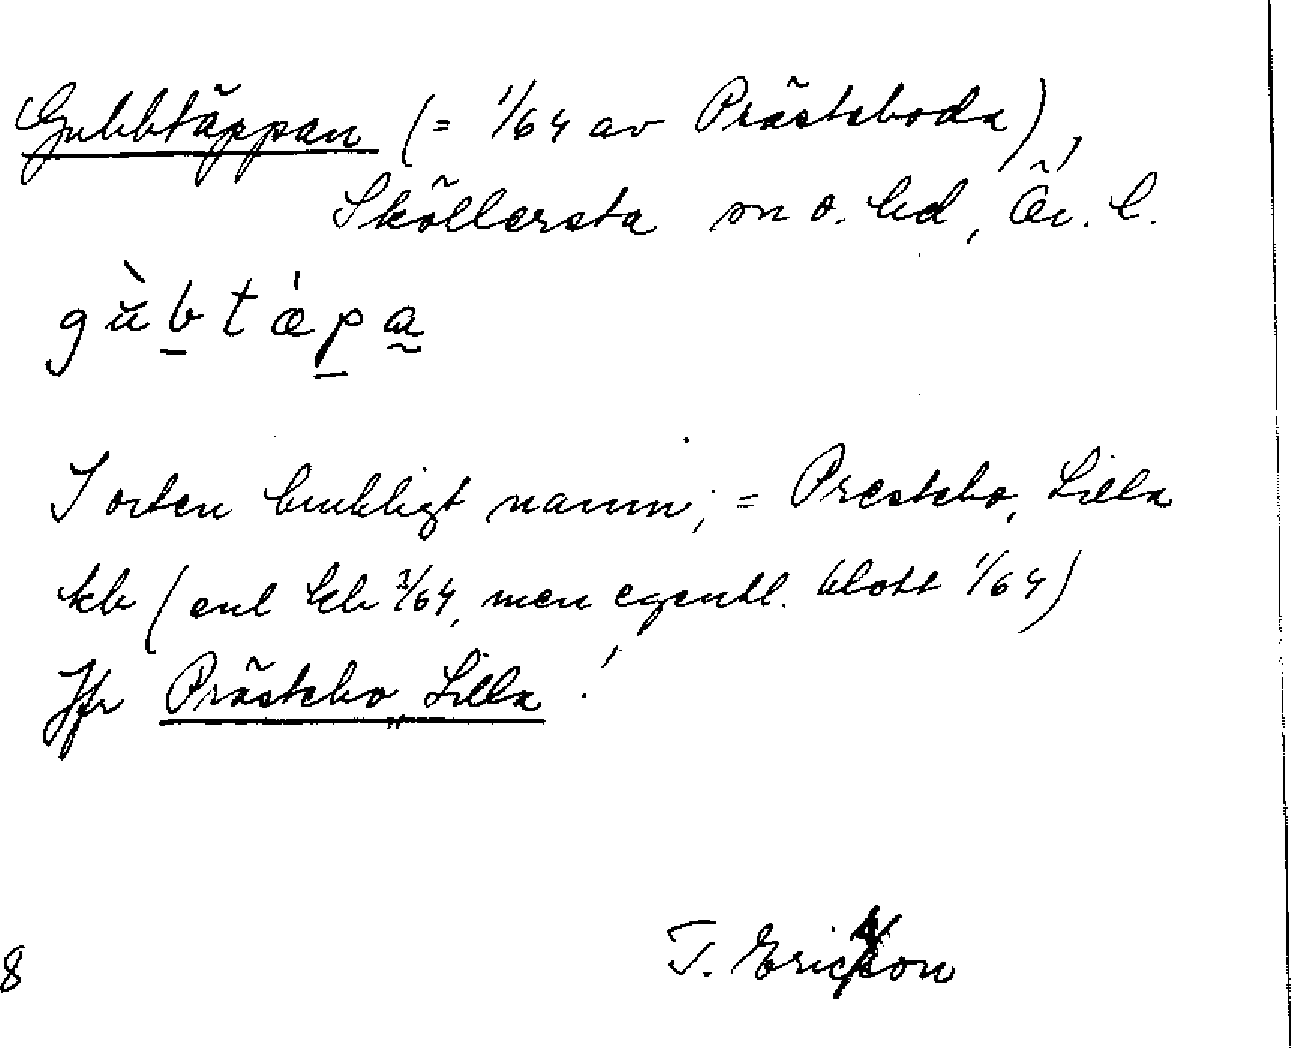 Gubbtäppan (= 1/64 av Prästeboda),
Sköllersta sn o. hd, Ör. l.
gùb̲tǽp̲a̰
I orten brukligt namn; = Prestebo, Lilla
kb (enl kb 3/64, men egentl. blott 1/64)
Jfr Prästebo, Lilla !
T. Ericsson
8